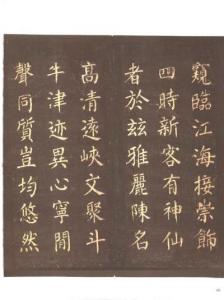 窺臨江海接崇飾
四時新客有神仙
者於茲雅麗陳名
高清遠峽文聚斗
牛津迹異心寧間
聲同質豈均悠然